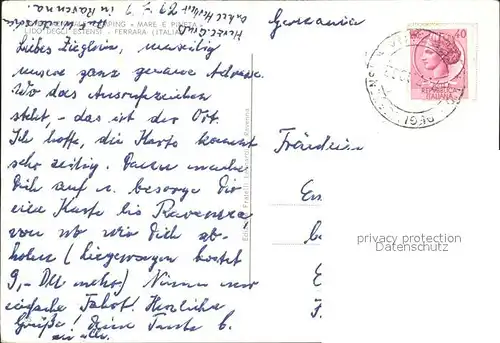 Germania
CAMPING • MARE E PINETA •
LIDO DEGLI ESTENSI - FERRARA (ITALIA)
40
REPUBBLICA
ITALIANA
Liebes Zieglein,
unsere ganz genaue Adresse.
Wo das Ausrufzeichen
steht, - das ist der Ort.
Ich hoffe, die Karte kommt
sehr zeitig. Dann mache
Dich auf u. besorge Dir
eine Karte bis Ravenna
von wo wir Dich ab-
holen (Liegewagen kostet
9,- DM mehr) Nimm nur
einfache Fahrt! Herzliche
Grüße! Deine Tante
an alle.
Fräulein
privacy protection
Datenschutz
Ravenna